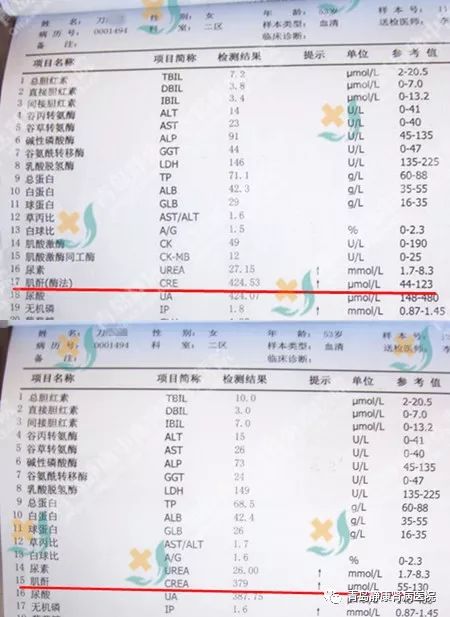 姓 名: 刀 性 别: 女 年 龄: 53岁 样 本 号:
病 历 号: 0001494 科 室: 二区 样本类型: 血清 送检医师:
备 注: 临床诊断:
项目名称 项目简称 检测结果 提示 单位 参 考 值
1 总胆红素 TBIL 7.2 μmol/L 2-20.5
2 直接胆红素 DBIL 3.8 μmol/L 0-7.0
3 间接胆红素 IBIL 3.4 μmol/L 0-13.2
4 谷丙转氨酶 ALT 14 U/L 0-41
5 谷草转氨酶 AST 23 U/L 0-40
6 碱性磷酸酶 ALP 91 U/L 45-135
7 谷氨酰转移酶 GGT 44 U/L 0-47
8 乳酸脱氢酶 LDH 146 U/L 135-225
9 总蛋白 TP 71.1 g/L 60-88
10 白蛋白 ALB 42.3 g/L 35-55
11 球蛋白 GLB 29 g/L 16-35
12 草丙比 AST/ALT 1.6
13 白球比 A/G 1.5 % 0-2.3
14 肌酸激酶 CK 49 U/L 0-190
15 肌酸激酶同工酶 CK-MB 12 U/L 0-25
16 尿素 UREA 27.15 ↑ mmol/L 1.7-8.3
17 肌酐(酶法) CRE 424.53 ↑ μmol/L 44-123
18 尿酸 UA 424.07 μmol/L 148-480
19 无机磷 IP 1.8 ↑ mmol/L 0.87-1.45
姓 名: 刀 性 别: 女 年 龄: 53岁 样 本 号:
病 历 号: 0001494 科 室: 二区 样本类型: 血清 送检医师:
备 注: 临床诊断:
项目名称 项目简称 检测结果 提示 单位 参 考 值
1 总胆红素 TBIL 10.0 μmol/L 2-20.5
2 直接胆红素 DBIL 3.0 μmol/L 0-7.0
3 间接胆红素 IBIL 7.0 μmol/L 0-13.2
4 谷丙转氨酶 ALT 15 U/L 0-41
5 谷草转氨酶 AST 26 U/L 0-40
6 碱性磷酸酶 ALP 73 U/L 45-135
7 谷氨酰转移酶 GGT 24 U/L 0-47
8 乳酸脱氢酶 LDH 149 U/L 135-225
9 总蛋白 TP 68.5 g/L 60-88
10 白蛋白 ALB 42.4 g/L 35-55
11 球蛋白 GLB 26 g/L 16-35
12 草丙比 AST/ALT 1.7
13 白球比 A/G 1.6 % 0-2.3
14 尿素 UREA 26.00 ↑ mmol/L 1.7-8.3
15 肌酐 CREA 379 ↑ μmol/L 55-130
16 尿酸 UA 387.75
17 无机磷 IP 1.6 ↑ mmol/L 0.87-1.45
青岛静康肾病医院